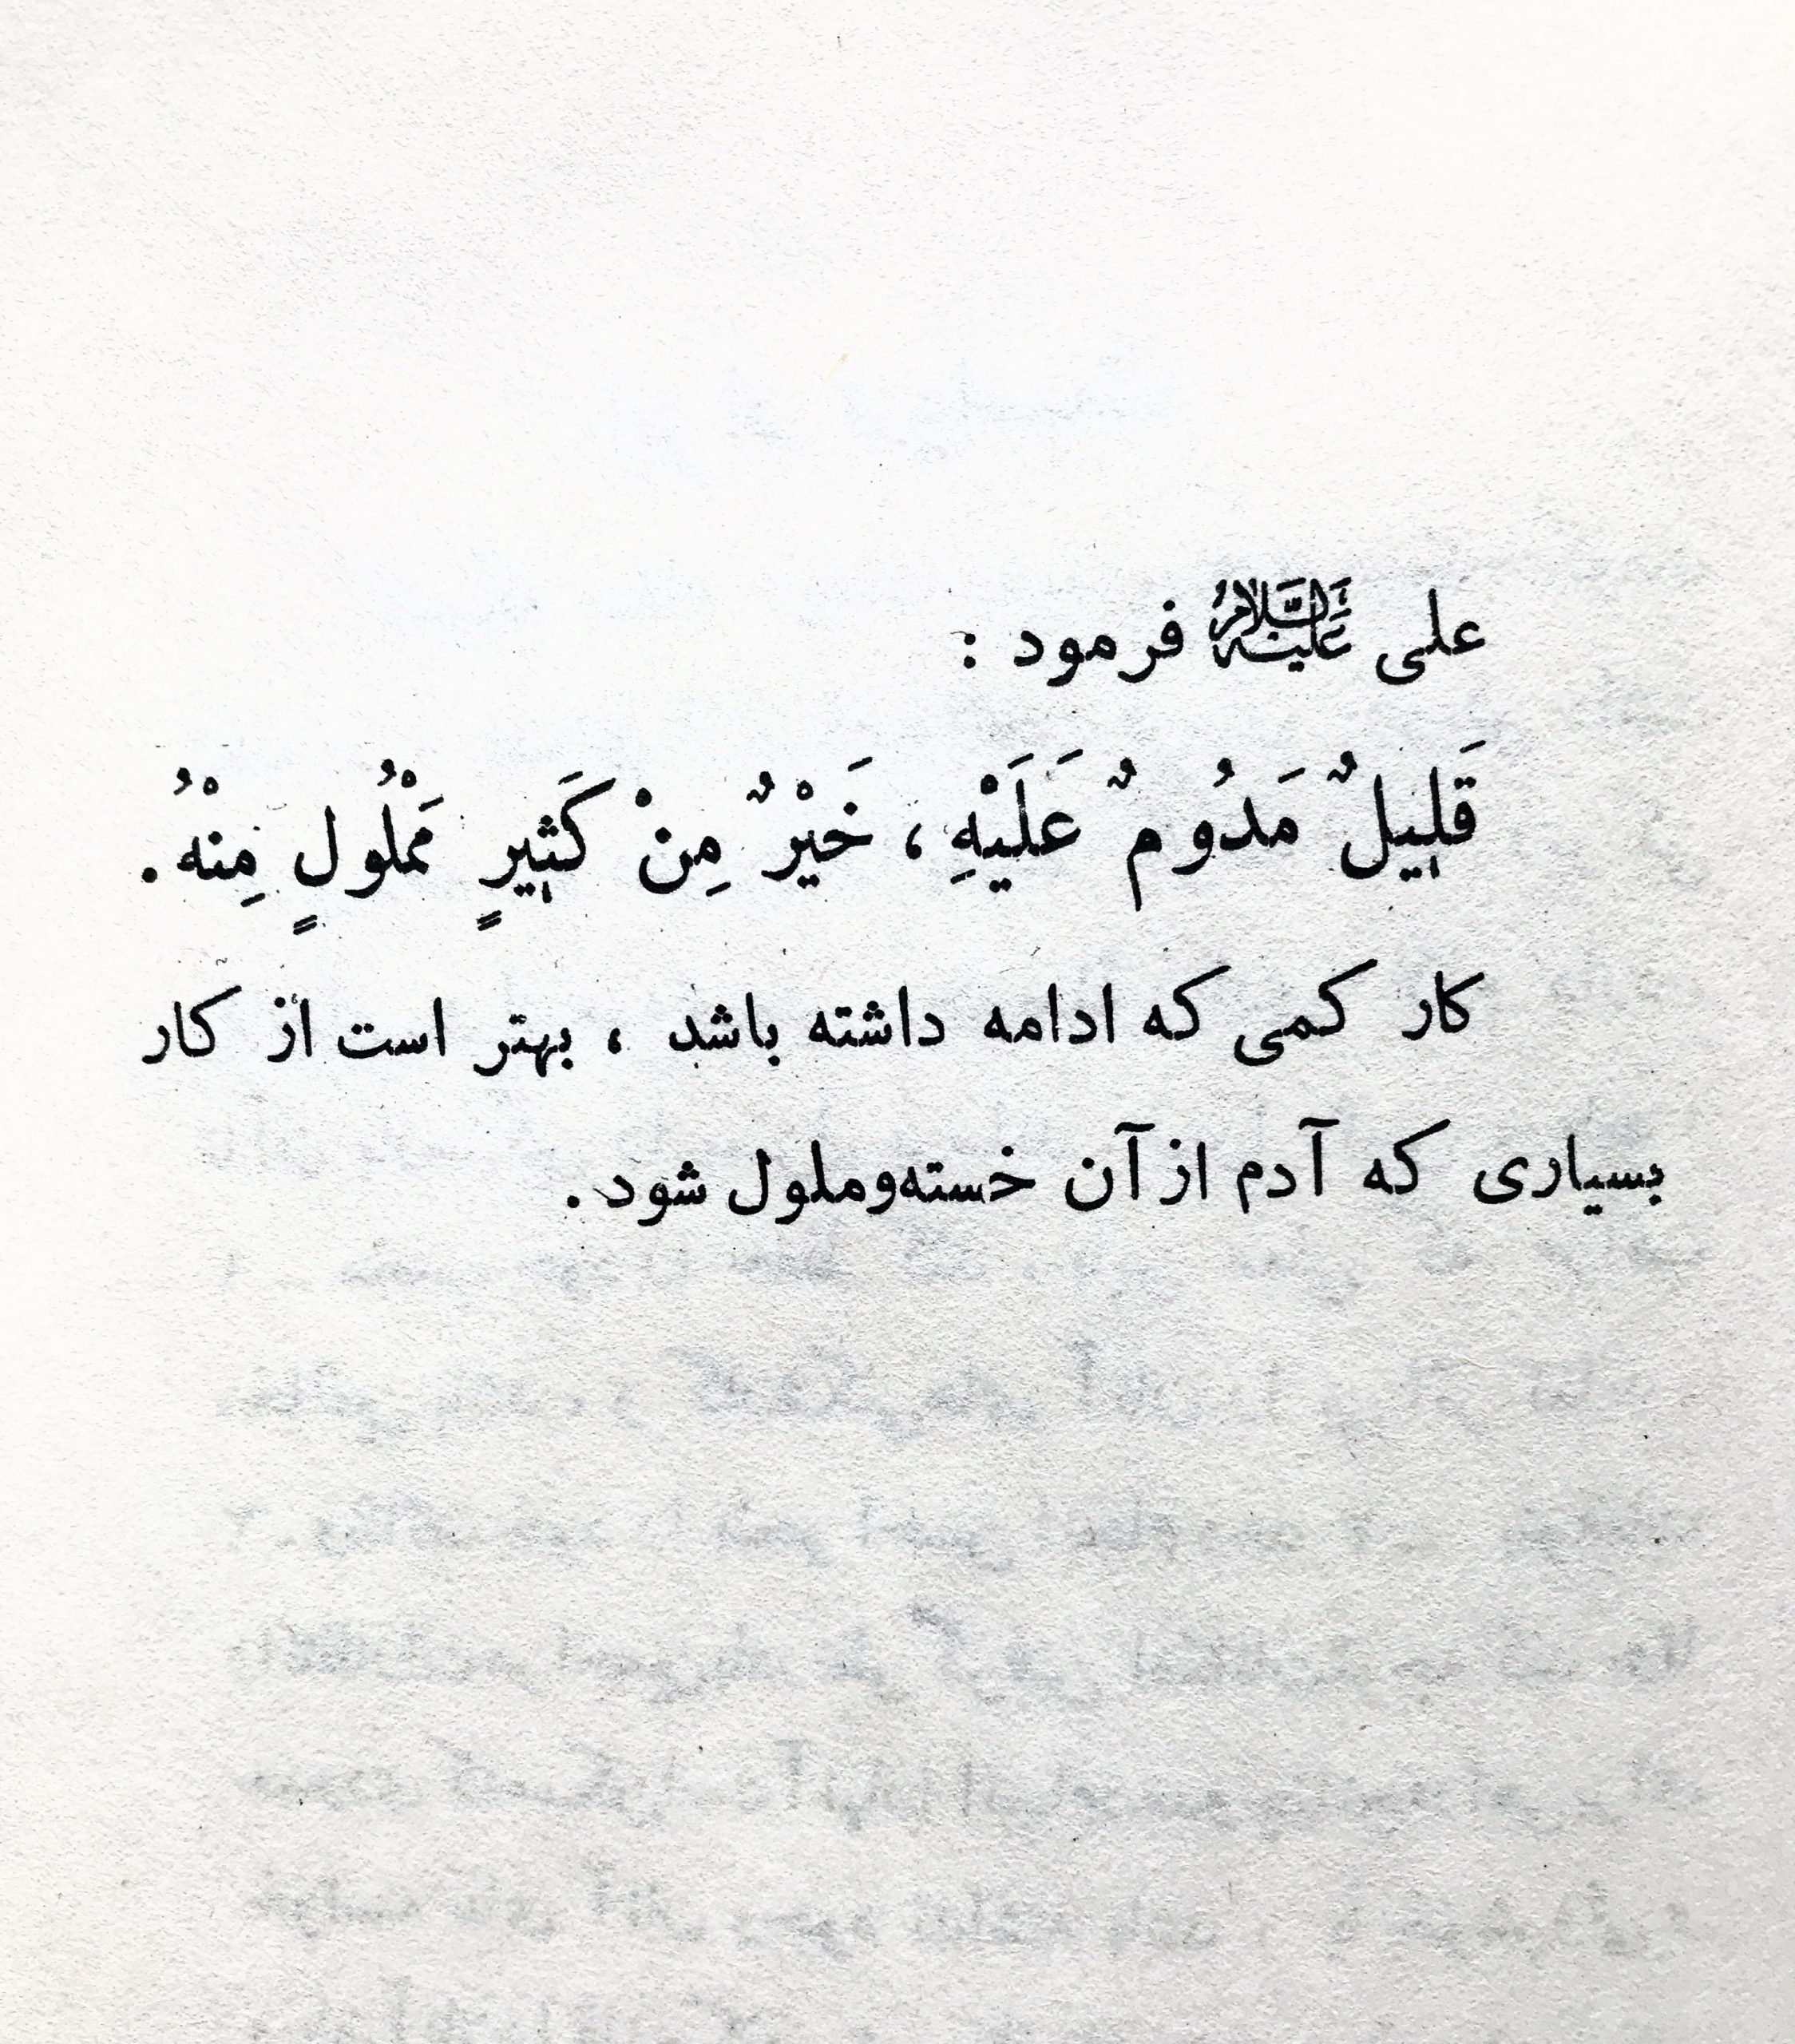 علی عَلَیْهِ‌السَّلامُ فرمود :
قَلیلٌ مَدُومٌ عَلَیْهِ ، خَیْرٌ مِنْ کَثیرٍ مَمْلُولٍ مِنْهُ .
کار کمی که ادامه داشته باشد ، بهتر است از کار
بسیاری که آدم از آن خسته‌وملول شود .